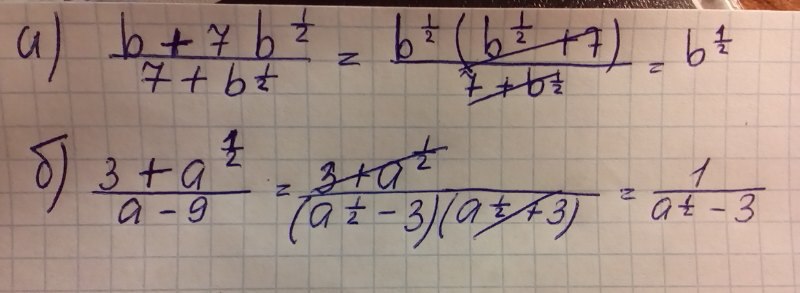 а) (b + 7 b^(1/2))/(7 + b^(1/2)) = (b^(1/2) (b^(1/2) + 7))/(7 + b^(1/2)) = b^(1/2)
б) (3 + a^(1/2))/(a - 9) = (3 + a^(1/2))/((a^(1/2) - 3)(a^(1/2) + 3)) = 1/(a^(1/2) - 3)